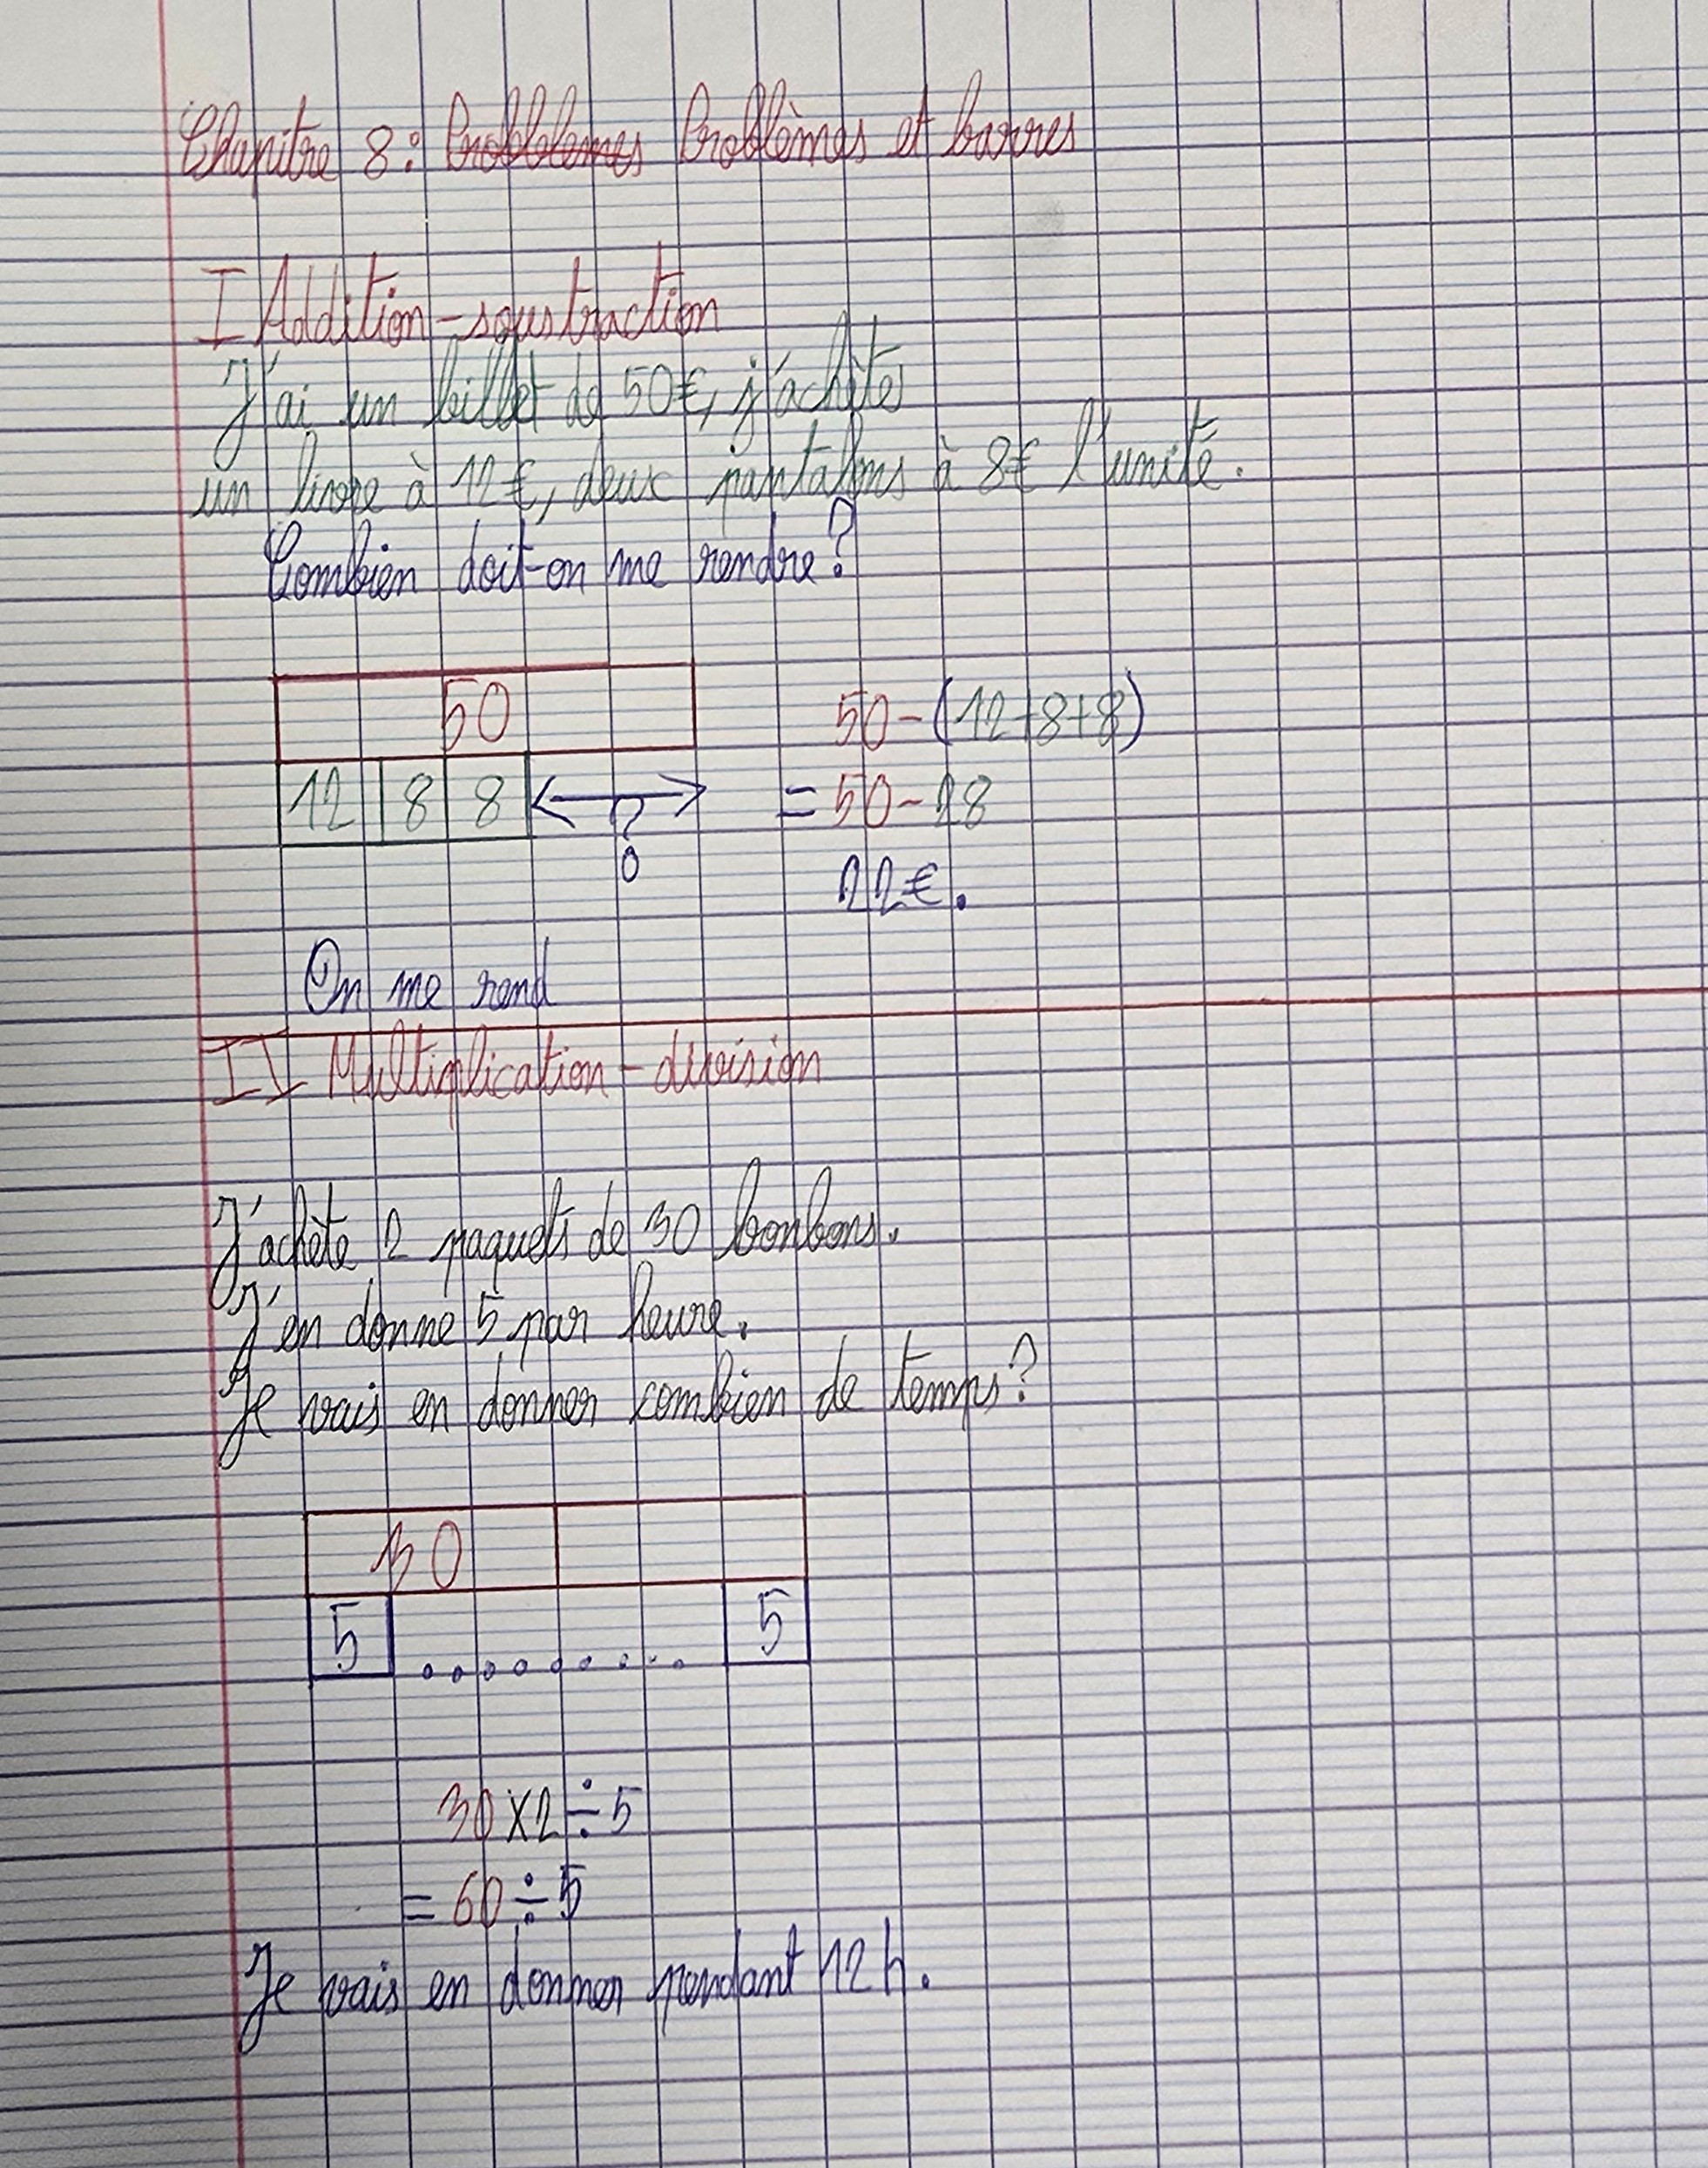 Chapitre 8: Probblemes Problèmes et barres
I Addition-soustraction
J'ai un billet de 50€, j'achètes
un livre à 12€, deux pantalons à 8€ l'unité.
Combien doit-on me rendre?
50
50-(12+8+8)
12 8 8 ?
=50-28
22€.
On me rend
II Multiplication-division
J'achète 2 paquets de 30 bonbons.
J'en donne 5 par heure.
Je vais en donner combien de temps?
30
5 ......... 5
30×2÷5
= 60÷5
Je vais en donner pendant 12h.